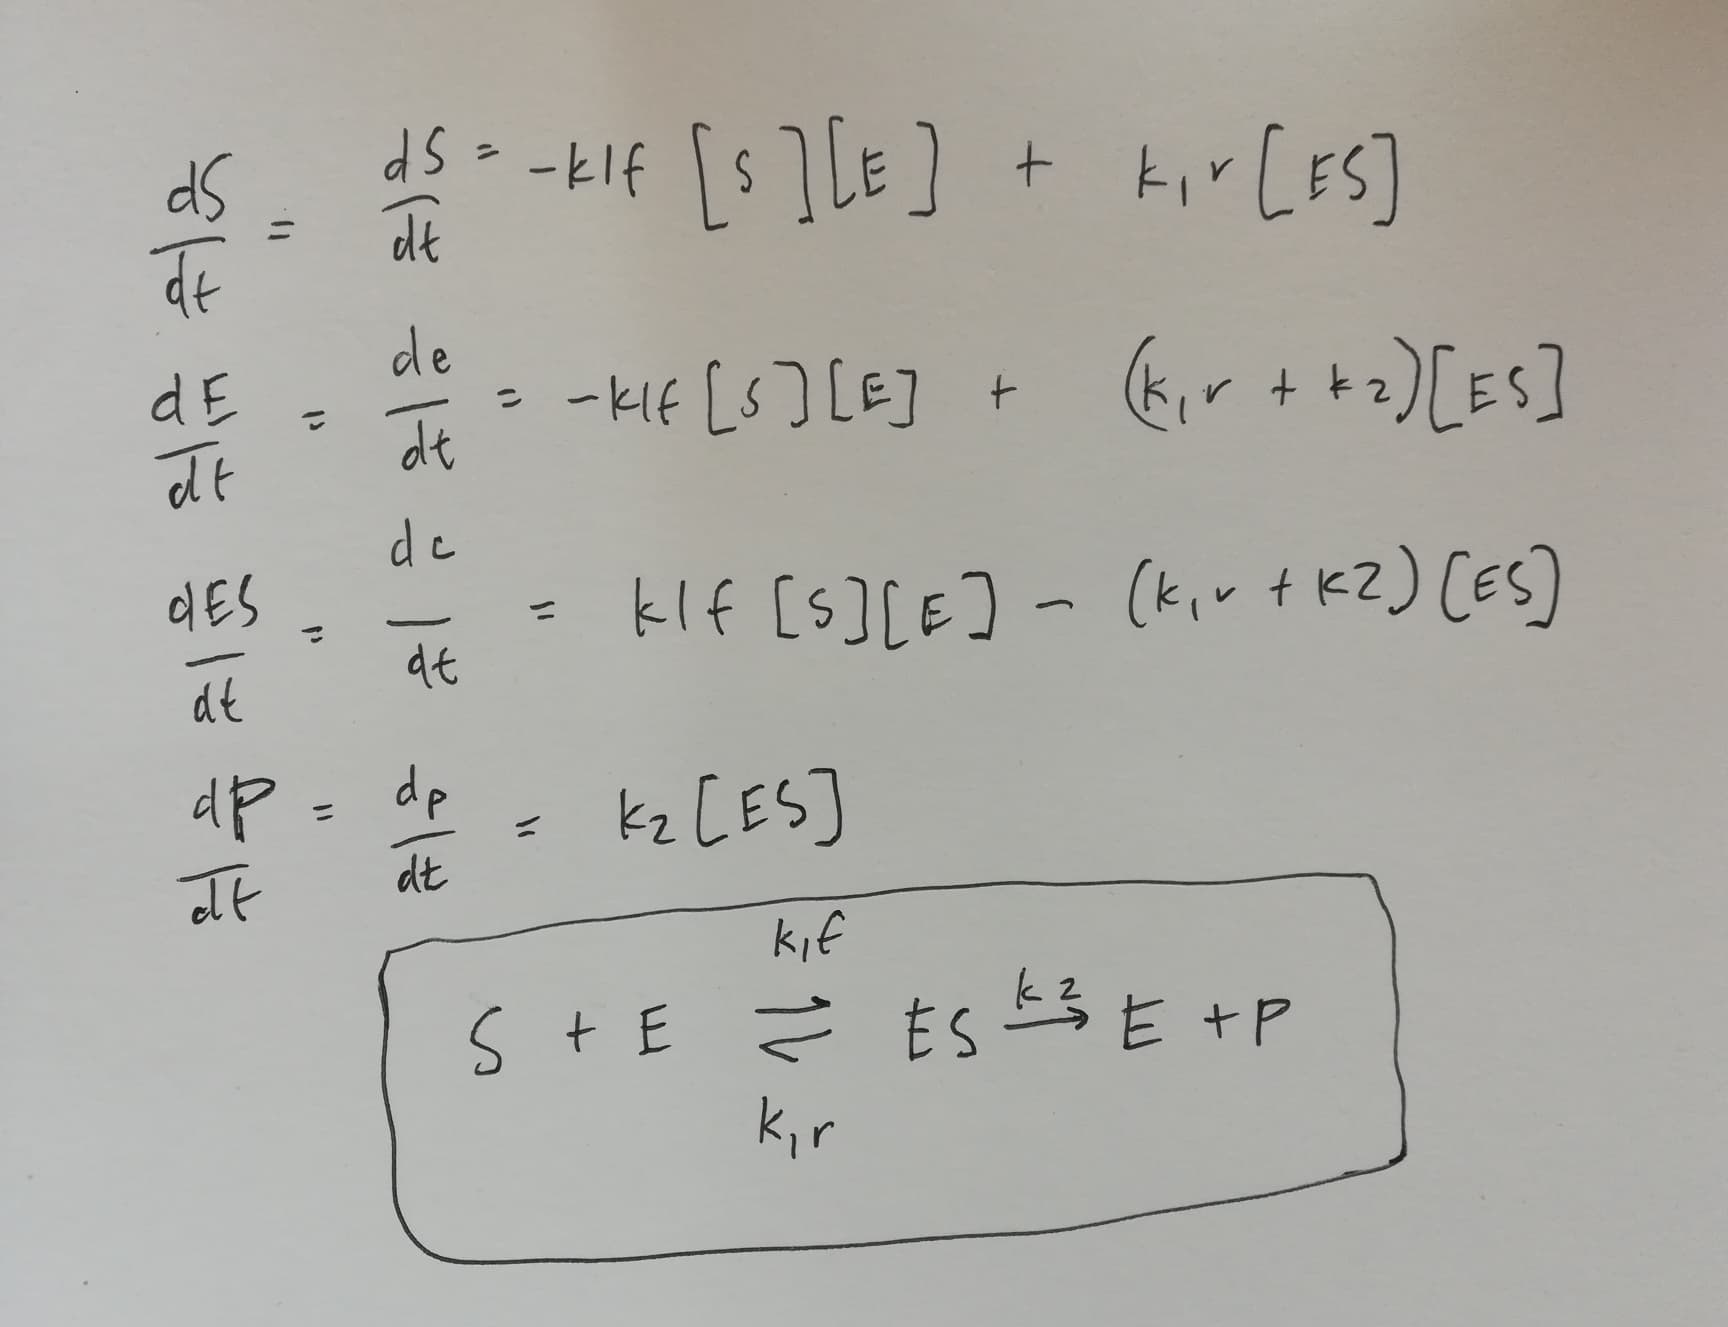 dS/dt = dS/dt = -k1f [S][E] + k₁r[ES]
dE/dt = de/dt = -k1f [S][E] + (k₁r + k2)[ES]
dES/dt = dc/dt = k1f [S][E] - (k₁r + k2)[ES]
dP/dt = dp/dt = k₂[ES]
k₁f
S + E ⇌ ES k2→ E + P
k₁r